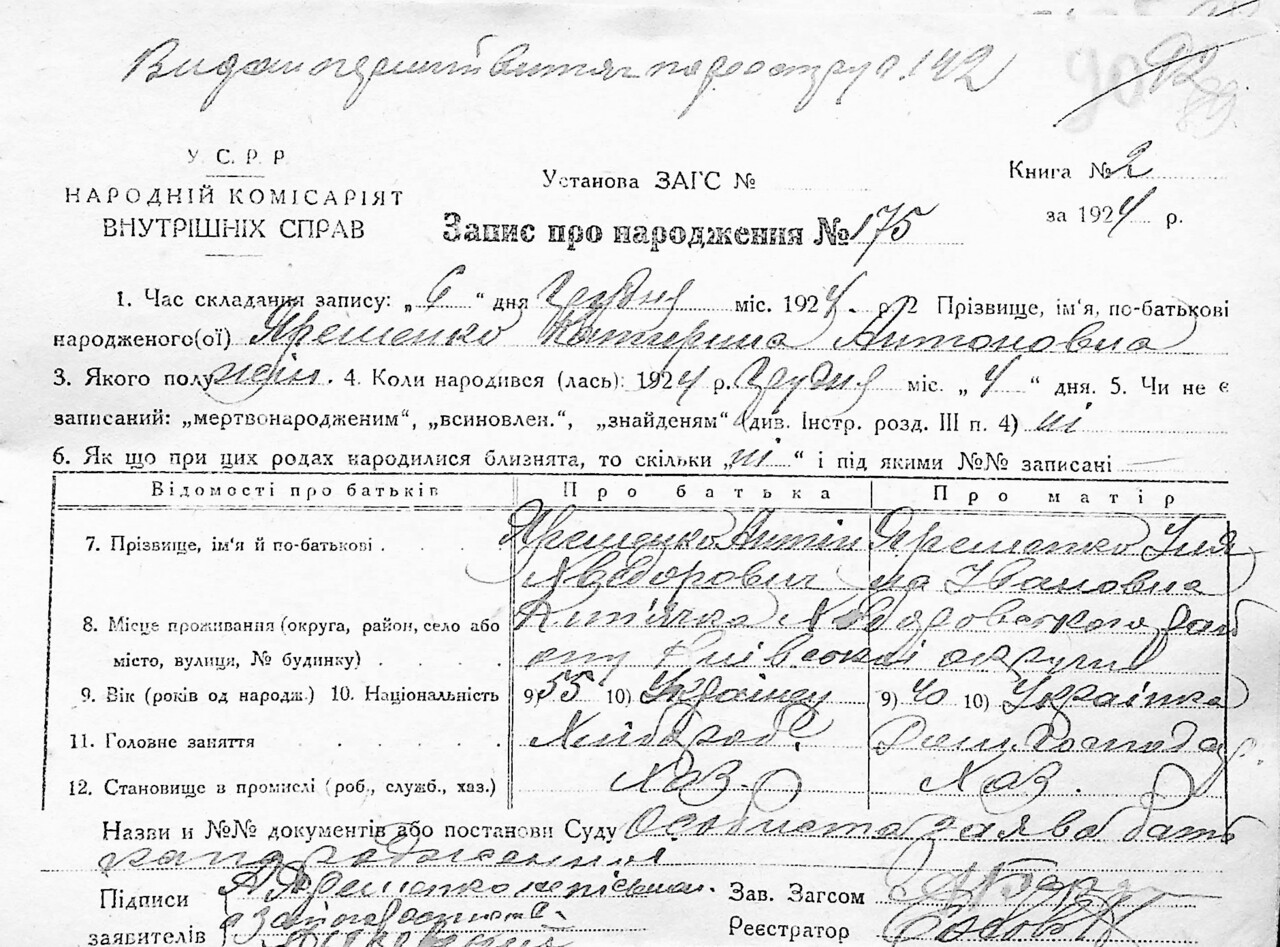 Видан перший витяг по реєстру 192
У. С. Р. Р.
НАРОДНІЙ КОМІСАРІЯТ
ВНУТРІШНІХ СПРАВ
Установа ЗАГС №
Книга № 2
за 1924 р.
Запис про народження № 175
1. Час складання запису: „ 6 “ дня грудня міс. 1924. р. 2 Прізвище, ім'я, по-батькові
народженого(ої) Яременко Катерина Антоновна
3. Якого полу жін. 4. Коли народився (лась): 1924 р. грудня міс. „ 4 “ дня. 5. Чи не є
записаний: „мертвонародженим“, „всиновлен.“, „знайденям“ (див. Інстр. розд. III п. 4) ні
6. Як що при цих родах народилися близнята, то скільки „ ні “ і під якими №№ записані —
Відомості про батьків Про батька Про матір
7. Прізвище, ім'я й по-батькові Яременко Антін Яременко Уля
Хведорович на Івановна
8. Місце проживання (округа, район, село або
місто, вулиця, № будинку) ону Київської округи
9. Вік (років од народж.) 10. Національність 9) 55 10) Українец 9) 40 10) Українка
11. Головне заняття Хлібороб. Дом. господар.
12. Становище в промислі (роб., служб., хаз.) Хаз. Хаз.
Назви и №№ документів або постанови Суду Особиста заява бать
Підписи А Яременко неписьмен.
заявителів
Зав. Загсом
Реєстратор